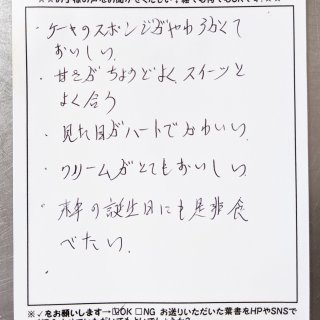 ・ケーキのスポンジがやわらかくて
おいしい.
・甘さがちょうどよく、スイーツと
よく合う
・見た目がハートでかわいい.
・クリームがとてもおいしい
・来年の誕生日にも是非食
べたい.
※✓をお願いします→☑OK □NG お送りいただいた葉書をHPやSNSで